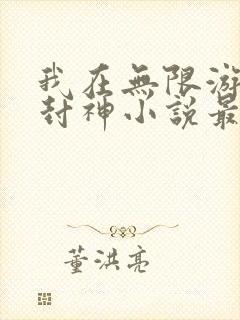 我在無限游
封神小説最
董洪亮